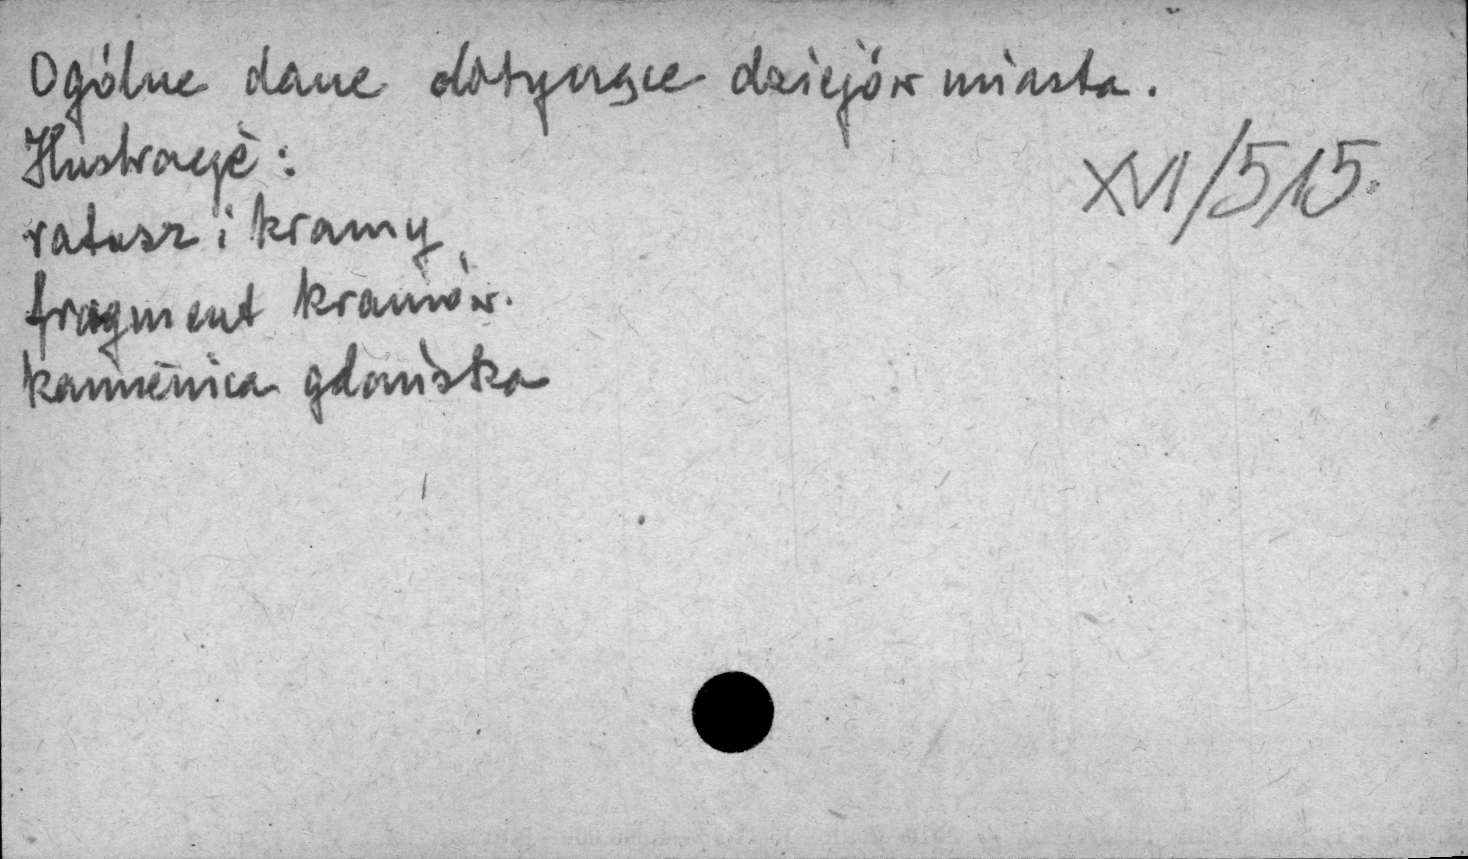 Ogólne dane dotyczące dziejów miasta.
Ilustracje:
XVI/515.
ratusz i kramy
fragment kramów.
kamienica gdańska